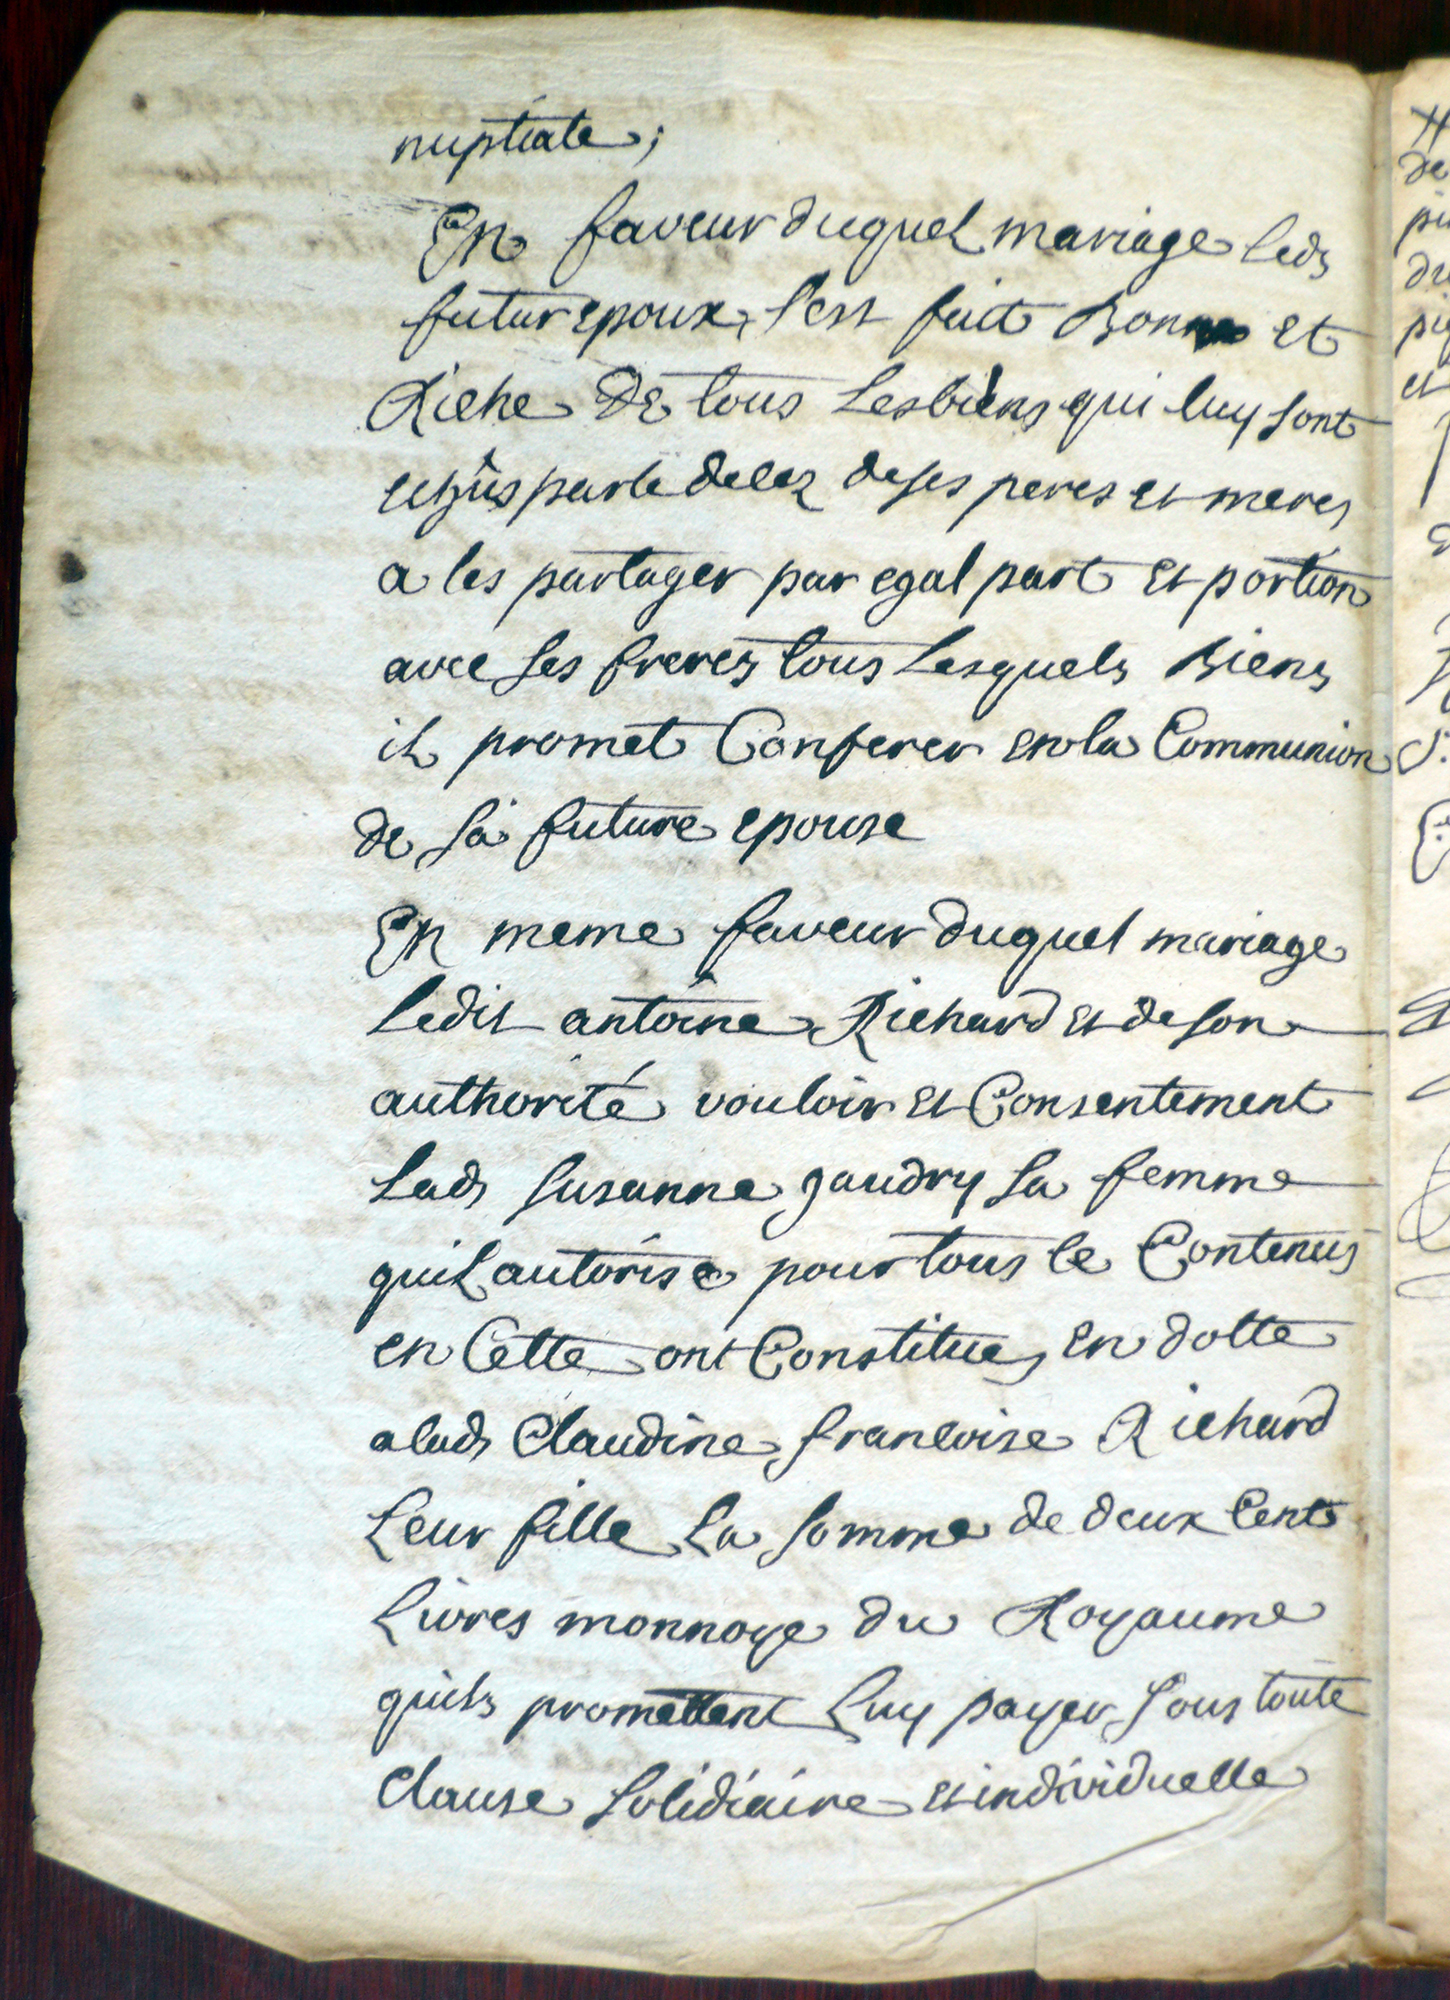 nuptiale;
En faveur duquel mariage leds
futur epoux, s'est fait Bon et
Riche de tous les biens qui luy sont
echûs par le delez de ses peres et meres
a les partager par egal part et portion
avec ses freres tous lesquels Biens
il promet Conferer en la Communion
de sa future epouse
En meme faveur duquel mariage
ledit antoine Richard et de son
authorité vouloir et Consentement
lads susanne gaudry sa femme
quil autorise pour tous le Contenus
en Cette ont Constitues en dotte
a lads Claudine francoise Richard
leur fille la somme de deux Cent
livres monnoye du Royaume
quils promettent luy payer sous toute
Clause solidiaire et individuelle
de
et